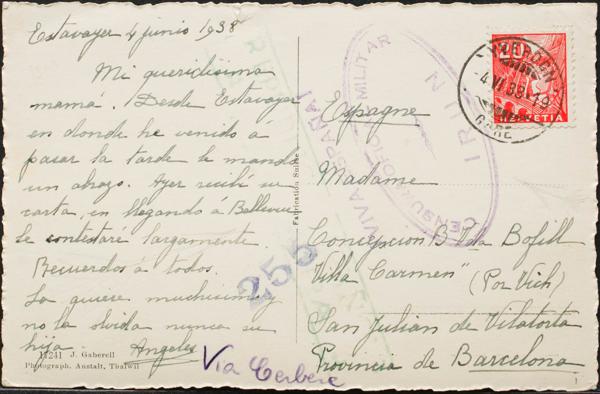 Estavayer 4 junio 1938
Mi queridisima
mamá. Desde Estavayer
en donde he venido á
pasar la tarde le mando
un abrazo. Ayer recibí su
carta, en llegando á Bellevue
le contestaré largamente.
Recuerdos á todos.
La quiere muchisimo y
no la olvida nunca su
hija Angeles
11241 J. Gaberell
Photograph. Anstalt, Thalwil
Fabrication Suisse
Via Cerbere
255
CENSURA MILITAR
IRUN
VIVA ESPAÑA!
YVERDON
-4.VI.38.-19
GARE
HELVETIA
Espagne
Madame
Concepcion B. Vda Bofill
"Villa Carmen" (Por Vich)
San Julian de Vilatorta
Provincia de Barcelona